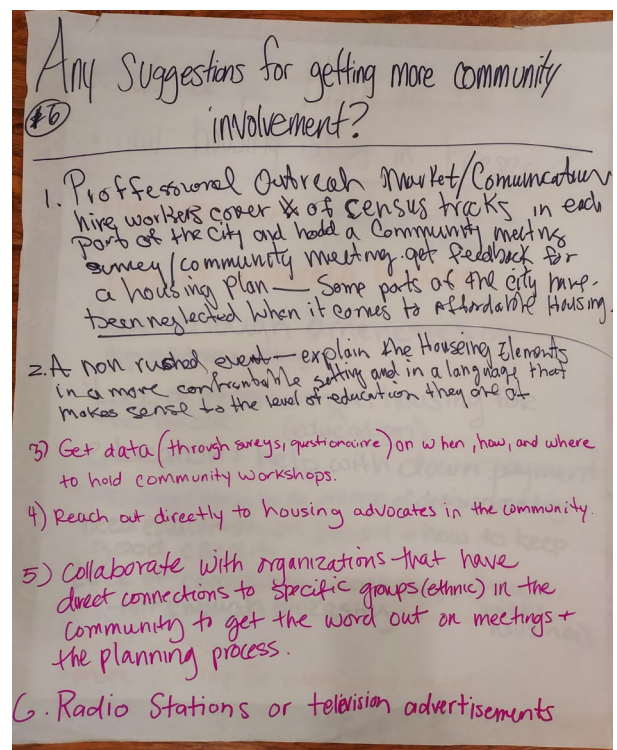 Any Suggestions for getting more community
#6
involvement?
1. Proffessional Outreah Market/Comumcation
hire workers cover of census tracks in each
part of the city and hodd a Community meeting
survey/community meeting. get feedback for
a housing plan — Some parts of the city have
been neglected when it comes to Affordable Housing.
2. A non rushed event — explain the Houseing Elements
in a more confrontable setting and in a language that
makes sense to the level of education they are at
3) Get data (through sureys, qustionairre) on when, how, and where
to hold community workshops.
4) Reach out directly to housing advocates in the community.
5) Collaborate with organizations that have
direct connections to specific groups (ethnic) in the
community to get the word out on meetings +
the planning process.
6. Radio Stations or television advertisements